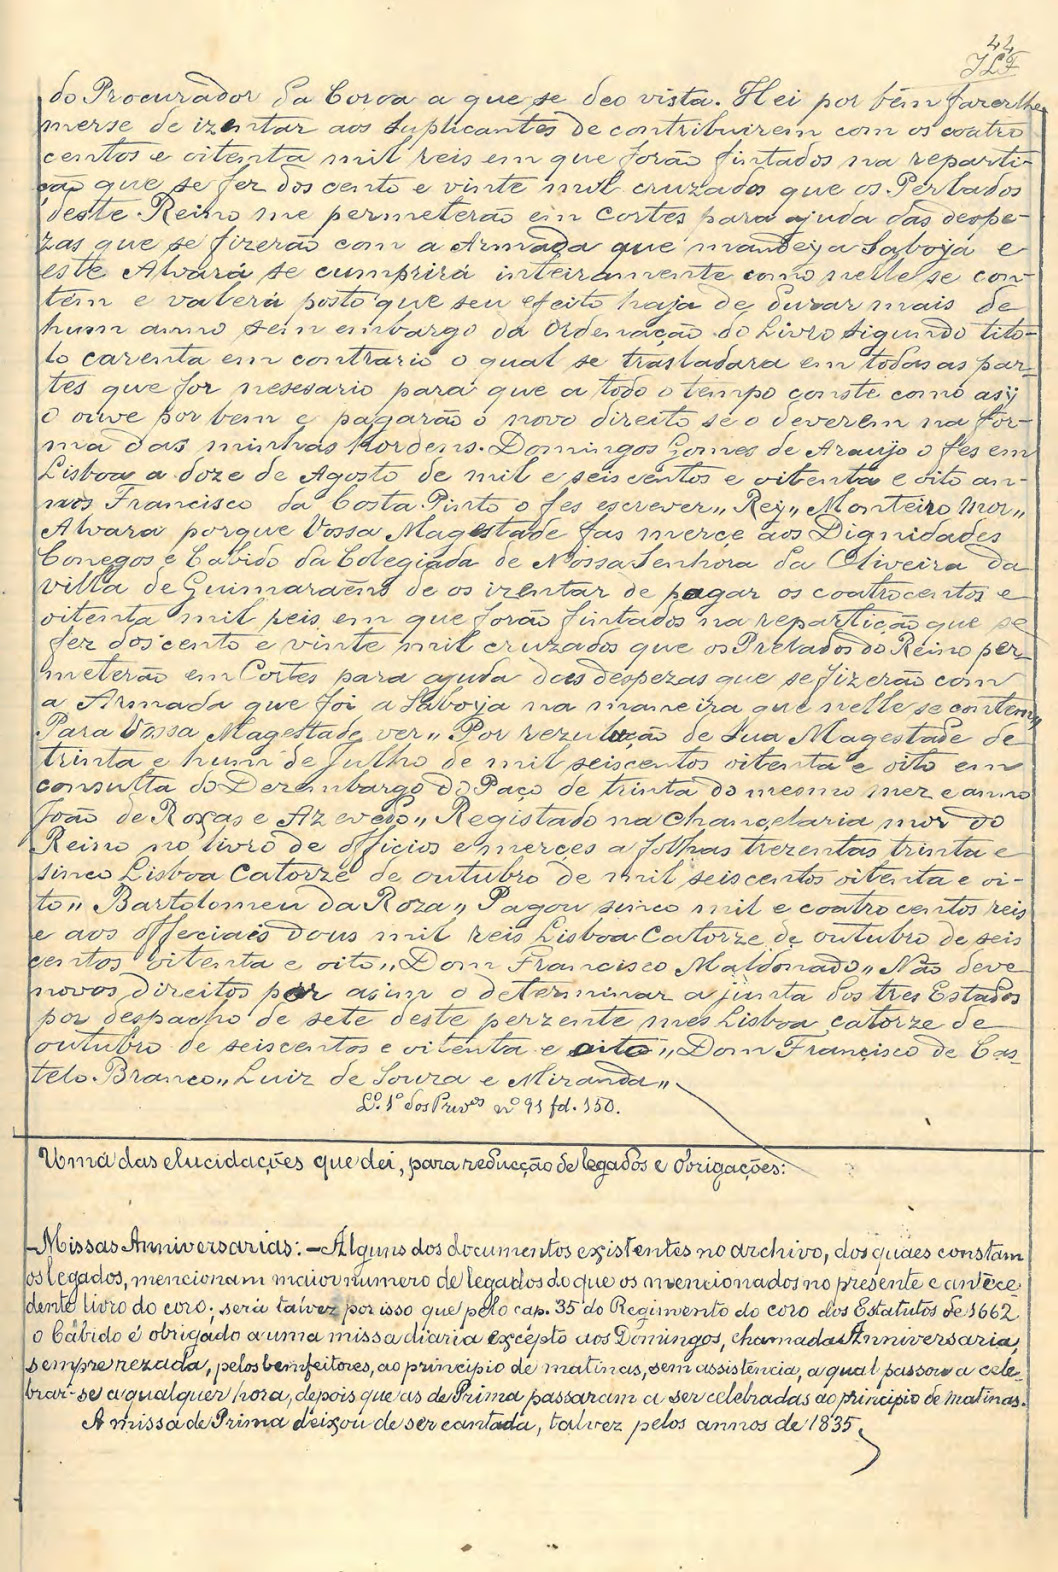 44
JLF
do Procurador da Coroa a que se deo vista. Hei por bem fazerlhe
merse de izentar aos suplicantes de contribuirem com os coatro
centos e oitenta mil reis em que forão fintados na reparti-
ção que se fez dos cento e vinte mil cruzados que os Perlados
deste Reino me permeterão em Cortes para ajuda das despe-
zas que se fizerão com a Armada que mandey a Saboya e
este Alvará se cumprirá inteiramente como nelle se con-
tem e valerá posto que seu efeito haja de durar mais de
hum anno sem embargo da Ordenação do Livro sigundo tito-
lo carenta em contrario o qual se trasladara em todas as par-
tes que for nesesario para que a todo o tempo conste como asÿ
o ouve por bem e pagarão o novo direito se o deverem na for-
ma das minhas hordens. Domingos Gomes de Araujo o fes em
Lisboa a doze de Agosto de mil e seiscentos e oitenta e oito an-
nos Francisco da Costa Pinto o fes escrever,, Rey,, Monteiro Mor,,
Alvara porque Vossa Magestade fas merçe aos Dignidades
Conegos e Cabido da Colegiada de Nossa Senhora da Oliveira da
villa de Guimaraẽns de os izentar de pagar os coatrocentos e
oitenta mil reis em que forão fintados na repartição que se
fez dos cento e vinte mil cruzados que os Prelados do Reino per-
meterão em Cortes para ajuda das despezas que se fizerão com
a Armada que foi a Saboya na maneira que nelle se contem,,
Para Vossa Magestade ver,, Por rezulução de Sua Magestade de
trinta e hum de Julho de mil seiscentos oitenta e oito em
consulta do Dezembargo do Paço de trinta do mesmo mez e anno
João de Roxas e Azevedo,, Registado na Chançelaria mor do
Reino no livro de officios e merçes a folhas trezentas trinta e
sinco Lisboa Catorze de outubro de mil seiscentos oitenta e oi-
to,, Bartolomeu da Roza,, Pagou sinco mil e coatrocentos reis
e aos offeciais dous mil reis Lisboa Catorze de outubro de seis
centos oitenta e oito,, Dom Francisco Maldonado,, Não deve
novos direitos por asim o determinar a junta dos tres Estados
por despacho de sete deste perzente mes Lisboa catorze de
outubro de seiscentos e oitenta e oito,, Dom Françisco de Cas-
telo Branco,, Luiz de Souza e Miranda,,
Lº. 1º dos Privºs nº 91 fl. 150.
Uma das elucidações que dei, para reducção de legados e obrigações:
—Missas Anniversarias:—Alguns dos documentos existentes no archivo, dos quaes constam
os legados, mencionam maior numero de legados do que os mencionados no presente e antece-
dente livro do coro; será talvez por isso que pelo cap. 35 do Regimento do coro dos Estatutos de 1662
o Cabido é obrigado a uma missa diaria excépto aos Domingos, chamada Anniversaria,
sempre rezada, pelos bemfeitores, ao principio de matinas, sem assistencia, a qual passou a cele-
brar-se a qualquer hora, depois que as de Prima passaram a ser celebradas ao principio de matinas.
A missa de Prima deixou de ser cantada, talvez pelos annos de 1835.